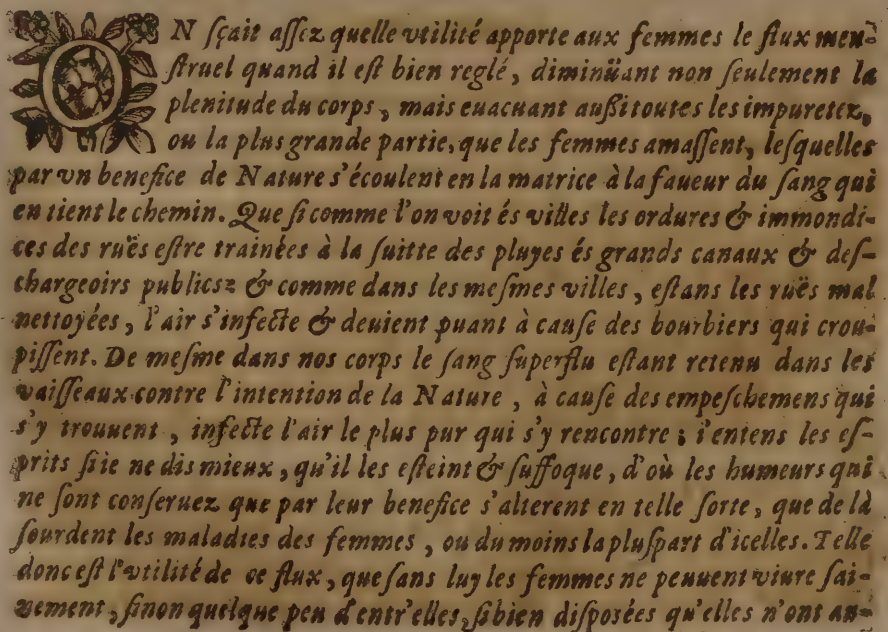 ON ſçait aſſez quelle vtilité apporte aux femmes le flux men-
ſtruel quand il eſt bien reglé, diminüant non ſeulement la
plenitude du corps, mais euacuant außi toutes les impuretez,
ou la plus grande partie, que les femmes amaſſent, leſquelles
par vn benefice de Nature s'écoulent en la matrice à la faueur du ſang qui
en tient le chemin. Que ſi comme l'on voit és villes les ordures & immondi-
ces des ruës eſtre trainées à la ſuitte des pluyes és grands canaux & deſ-
chargeoirs publics: & comme dans les meſmes villes, eſtans les ruës mal
nettoyées, l'air s'infecte & deuient puant à cauſe des bourbiers qui crou-
piſſent. De meſme dans nos corps le ſang ſuperflu eſtant retenu dans les
vaiſſeaux contre l'intention de la Nature, à cauſe des empeſchemens qui
s'y trouuent, infecte l'air le plus pur qui s'y rencontre: i'entens les eſ-
prits ſi ie ne dis mieux, qu'il les eſteint & ſuffoque, d'où les humeurs qui
ne ſont conſeruez que par leur benefice s'alterent en telle ſorte, que de là
ſourdent les maladies des femmes, ou du moins la pluſpart d'icelles. Telle
donc eſt l'vtilité de ce flux, que ſans luy les femmes ne peuuent viure ſai-
nement, ſinon quelque peu d'entr'elles, ſi bien diſposées qu'elles n'ont au-